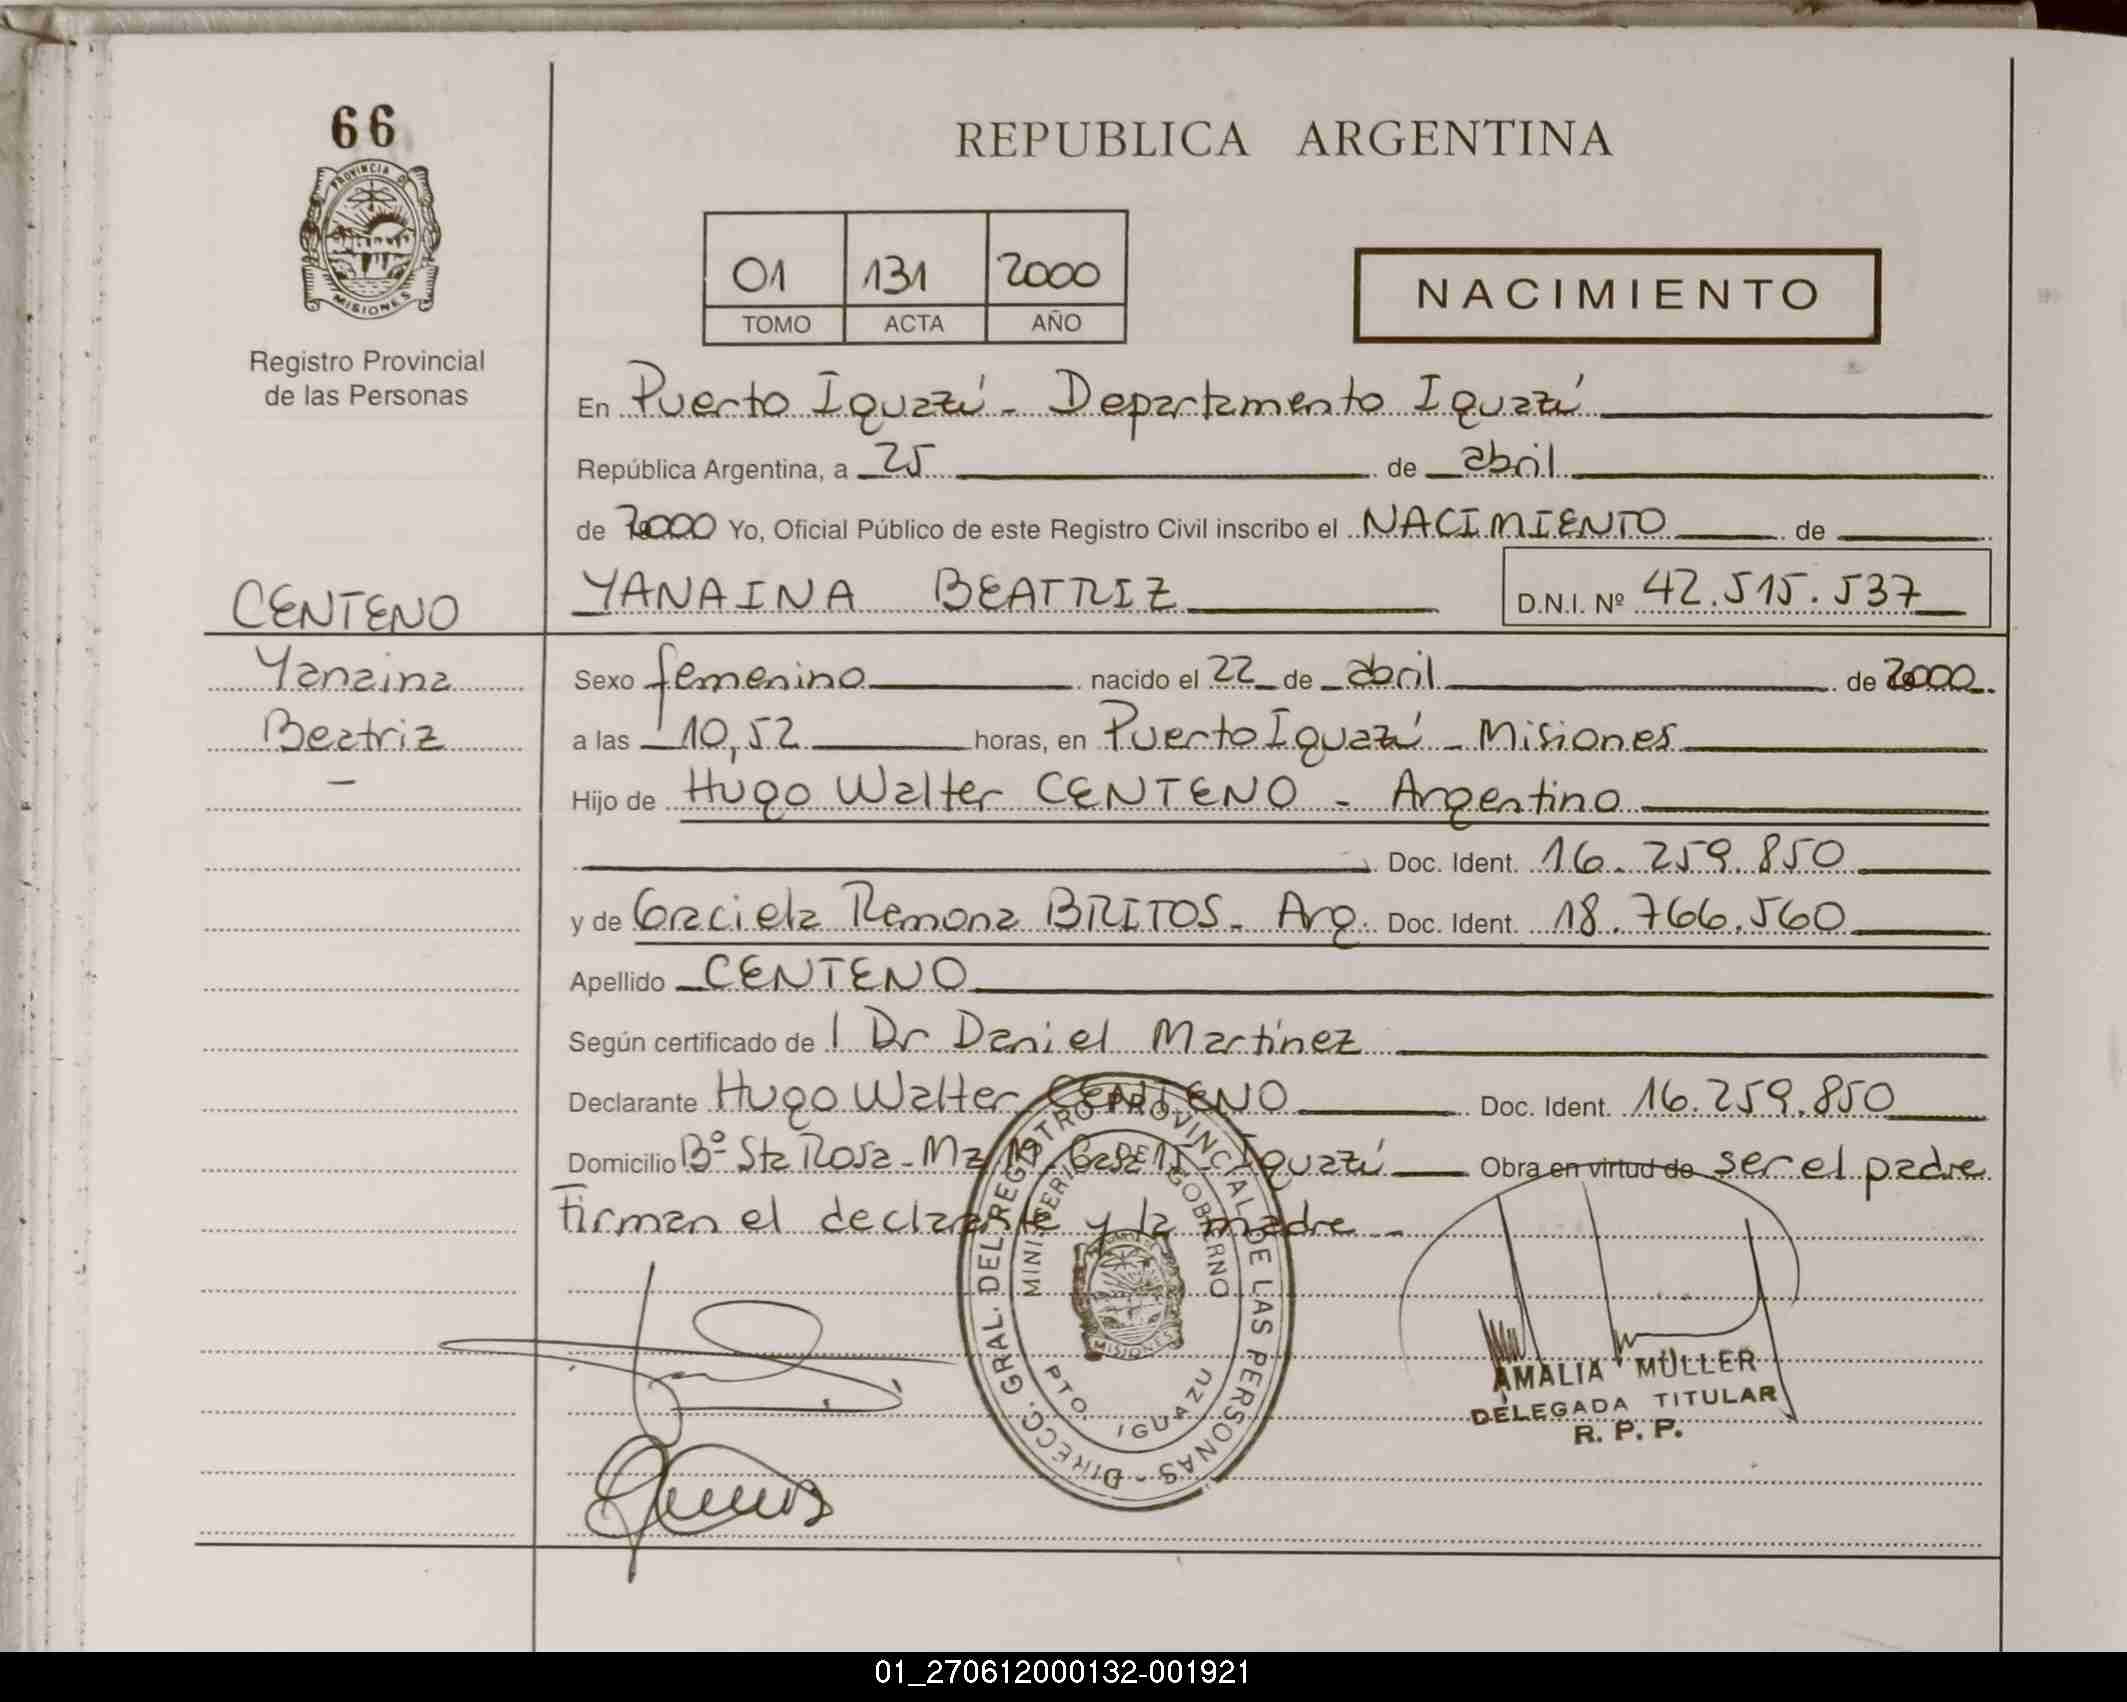 66
PROVINCIA DE
MISIONES
Registro Provincial
de las Personas
REPUBLICA ARGENTINA
01 131 2000
TOMO ACTA AÑO
NACIMIENTO
En Puerto Iguazú - Departamento Iguazú
República Argentina, a 25 de abril
de 2000 Yo, Oficial Público de este Registro Civil inscribo el NACIMIENTO de
YANAINA BEATRIZ D.N.I. Nº 42.515.537
CENTENO
Yanaina
Beatriz
-
Sexo femenino nacido el 22 de abril de 2000
a las 10,52 horas, en Puerto Iguazú - Misiones
Hijo de Hugo Walter CENTENO - Argentino
Doc. Ident. 16.259.850
y de Graciela Ramona BRITOS - Arg. Doc. Ident. 18.766.560
Apellido CENTENO
Según certificado de l Dr Daniel Martínez
Declarante Hugo Walter CENTENO Doc. Ident. 16.259.850
Domicilio Bº Sta Rosa - Mz Casa Iguazú Obra en virtud de ser el padre
Firman el declarante y la madre -
DIRECC. GRAL. DEL REGISTRO PROVINCIAL DE LAS PERSONAS -
MINISTERIO DE GOBIERNO
MISIONES
PTO. IGUAZU
AMALIA MÜLLER
DELEGADA TITULAR
R. P. P.
01_270612000132-001921